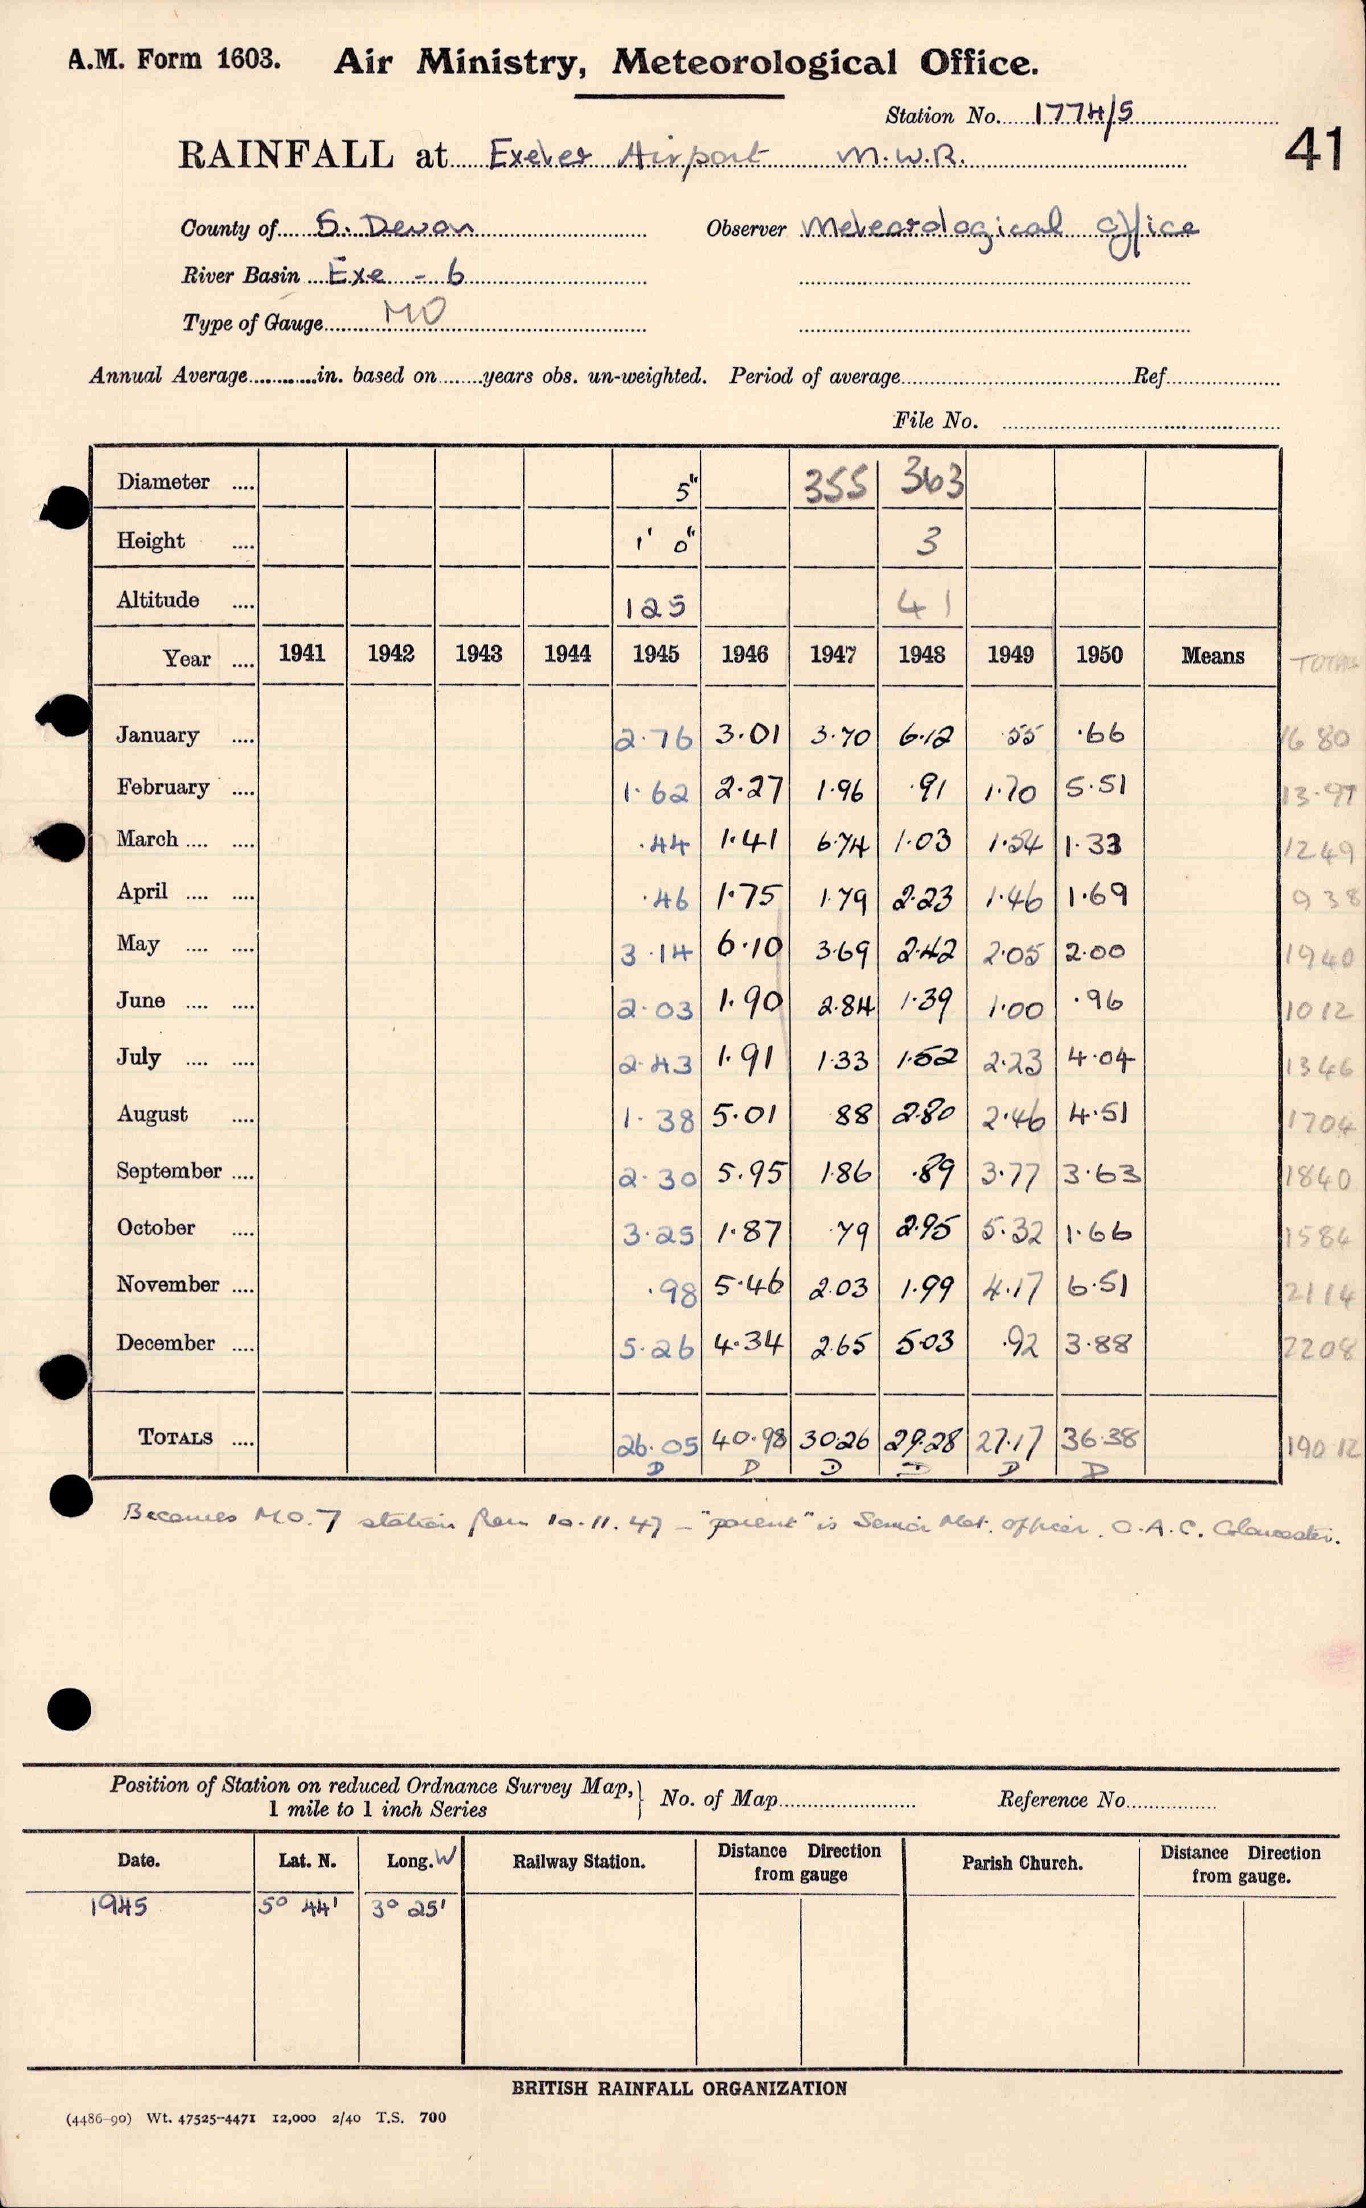 A.M. Form 1603. Air Ministry, Meteorological Office.
Station No. 1774/5
41
RAINFALL at Exeter Airport M.W.R.
County of S. Devon Observer Meteorological Office
River Basin Exe - 6
Type of Gauge MO
Annual Average............in. based on.......years obs. un-weighted. Period of average Ref.
File No.
Diameter .... 5" 355 363
Height .... 1' 0" 3
Altitude .... 125 41
Year .... 1941 1942 1943 1944 1945 1946 1947 1948 1949 1950 Means TOTAL
January .... 2.76 3.01 3.70 6.12 .55 .66 16 80
February .... 1.62 2.27 1.96 .91 1.70 5.51 13.97
March .... .... .44 1.41 6.74 1.03 1.54 1.33 1249
April .... .... .46 1.75 1.79 2.23 1.46 1.69 938
May .... .... 3.14 6.10 3.69 2.42 2.05 2.00 1940
June .... .... 2.03 1.90 2.84 1.39 1.00 .96 1012
July .... .... 2.43 1.91 1.33 1.52 2.23 4.04 1346
August .... 1.38 5.01 .88 2.80 2.46 4.51 1704
September .... 2.30 5.95 1.86 .89 3.77 3.63 1840
October .... 3.25 1.87 .79 2.95 5.32 1.66 1584
November .... .98 5.46 2.03 1.99 4.17 6.51 2114
December .... 5.26 4.34 2.65 5.03 .92 3.88 2208
TOTALS .... 26.05 40.98 30.26 29.28 27.17 36.38 190 12
D D D D D D
Becomes M.O.7 station from 10.11.47 - "parent" is Senior Met. Officer, O.A.C. Gloucester.
Position of Station on reduced Ordnance Survey Map, } No. of Map Reference No.
1 mile to 1 inch Series
Date. Lat. N. Long. W Railway Station. Distance Direction from gauge Parish Church. Distance Direction from gauge.
1945 50 44' 3° 25'
BRITISH RAINFALL ORGANIZATION
(4486-90) Wt. 47525-4471 12,000 2/40 T.S. 700